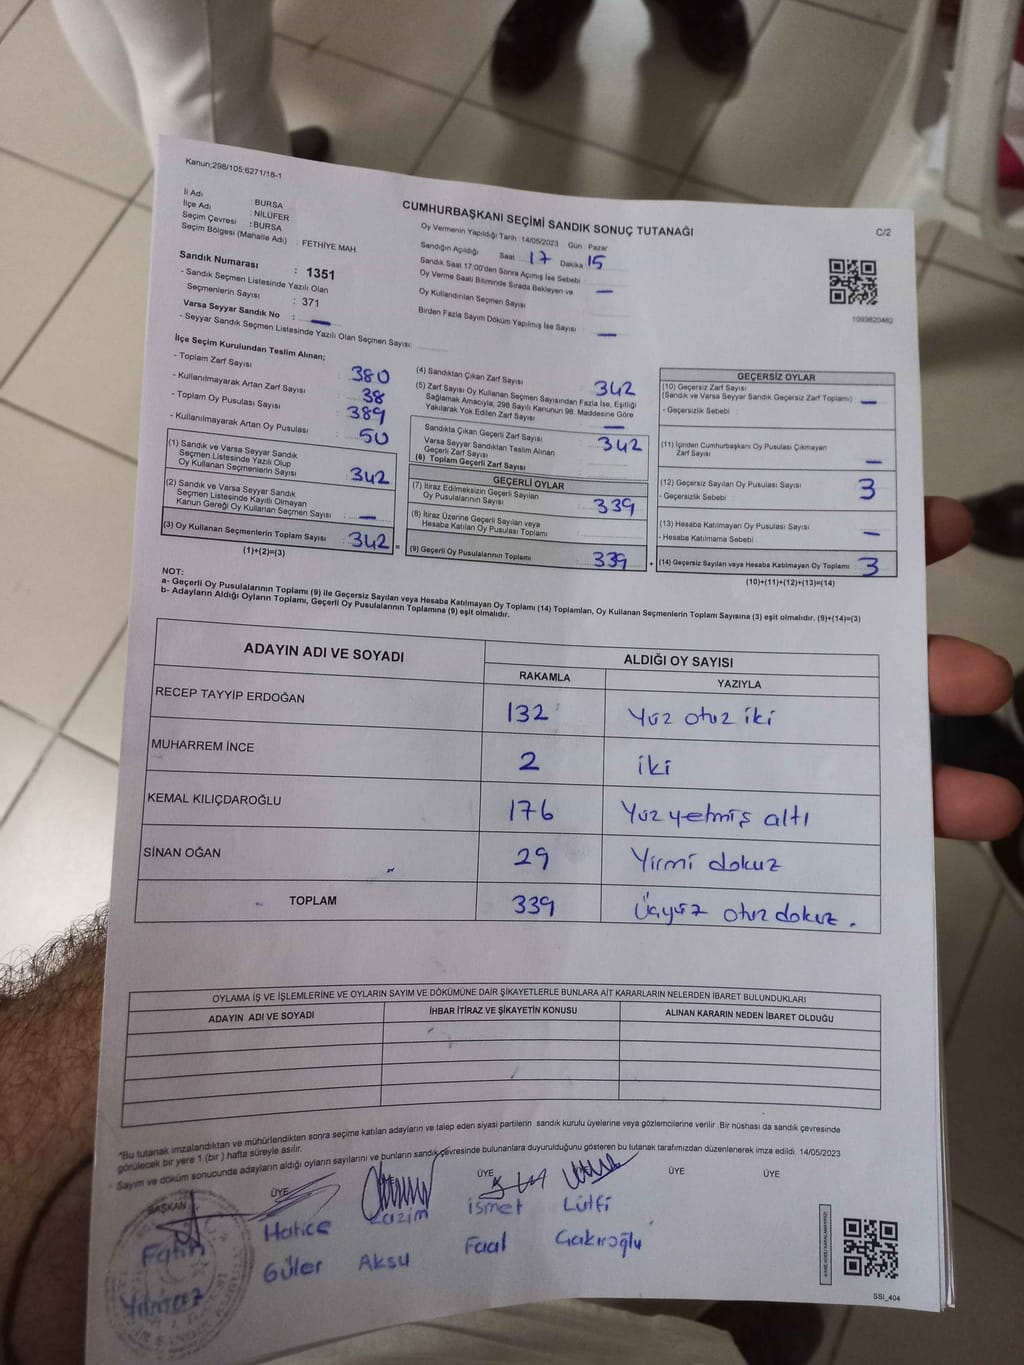 Kanun;298/105;6271/18-1
CUMHURBAŞKANI SEÇİMİ SANDIK SONUÇ TUTANAĞI
C/2
İl Adı : BURSA
İlçe Adı : NİLÜFER
Seçim Çevresi : BURSA
Seçim Bölgesi (Mahalle Adı) : FETHİYE MAH
Sandık Numarası : 1351
- Sandık Seçmen Listesinde Yazılı Olan
Seçmenlerin Sayısı : 371
Varsa Seyyar Sandık No : —
- Seyyar Sandık Seçmen Listesinde Yazılı Olan Seçmen Sayısı:
Oy Vermenin Yapıldığı Tarih : 14/05/2023 Gün : Pazar
Sandığın Açıldığı Saat 17 Dakika 15
Sandık Saat 17:00'den Sonra Açılmış İse Sebebi
Oy Verme Saati Bitiminde Sırada Bekleyen ve —
Oy Kullandırılan Seçmen Sayısı
Birden Fazla Sayım Döküm Yapılmış İse Sayısı —
1093820462
İlçe Seçim Kurulundan Teslim Alınan;
- Toplam Zarf Sayısı : 380
- Kullanılmayarak Artan Zarf Sayısı : 38
- Toplam Oy Pusulası Sayısı : 389
- Kullanılmayarak Artan Oy Pusulası : 50
(1) Sandık ve Varsa Seyyar Sandık
Seçmen Listesinde Yazılı Olup
Oy Kullanan Seçmenlerin Sayısı : 342
(2) Sandık ve Varsa Seyyar Sandık
Seçmen Listesinde Kayıtlı Olmayan
Kanun Gereği Oy Kullanan Seçmen Sayısı : —
(3) Oy Kullanan Seçmenlerin Toplam Sayısı : 342 =
(1)+(2)=(3)
(4) Sandıktan Çıkan Zarf Sayısı : 342
(5) Zarf Sayısı Oy Kullanan Seçmen Sayısından Fazla İse, Eşitliği
Sağlamak Amacıyla, 298 Sayılı Kanunun 98. Maddesine Göre
Yakılarak Yok Edilen Zarf Sayısı : —
Sandıkta Çıkan Geçerli Zarf Sayısı : 342
Varsa Seyyar Sandıktan Teslim Alınan
Geçerli Zarf Sayısı
(6) Toplam Geçerli Zarf Sayısı
GEÇERLİ OYLAR
(7) İtiraz Edilmeksizin Geçerli Sayılan
Oy Pusulalarının Sayısı : 339
(8) İtiraz Üzerine Geçerli Sayılan veya
Hesaba Katılan Oy Pusulası Toplamı :
(9) Geçerli Oy Pusulalarının Toplamı : 339 +
GEÇERSİZ OYLAR
(10) Geçersiz Zarf Sayısı
(Sandık ve Varsa Seyyar Sandık Geçersiz Zarf Toplamı) : —
- Geçersizlik Sebebi :
(11) İçinden Cumhurbaşkanı Oy Pusulası Çıkmayan
Zarf Sayısı : —
(12) Geçersiz Sayılan Oy Pusulası Sayısı : 3
- Geçersizlik Sebebi :
(13) Hesaba Katılmayan Oy Pusulası Sayısı : —
- Hesaba Katılmama Sebebi :
(14) Geçersiz Sayılan veya Hesaba Katılmayan Oy Toplamı : 3
(10)+(11)+(12)+(13)=(14)
NOT:
a- Geçerli Oy Pusulalarının Toplamı (9) ile Geçersiz Sayılan veya Hesaba Katılmayan Oy Toplamı (14) Toplamları, Oy Kullanan Seçmenlerin Toplam Sayısına (3) eşit olmalıdır. (9)+(14)=(3)
b- Adayların Aldığı Oyların Toplamı, Geçerli Oy Pusulalarının Toplamına (9) eşit olmalıdır.
ADAYIN ADI VE SOYADI ALDIĞI OY SAYISI
RAKAMLA YAZIYLA
RECEP TAYYİP ERDOĞAN 132 Yüz otuz iki
MUHARREM İNCE 2 iki
KEMAL KILIÇDAROĞLU 176 Yüz yetmiş altı
SİNAN OĞAN 29 Yirmi dokuz
TOPLAM 339 Üçyüz otuz dokuz.
OYLAMA İŞ VE İŞLEMLERİNE VE OYLARIN SAYIM VE DÖKÜMÜNE DAİR ŞİKAYETLERLE BUNLARA AİT KARARLARIN NELERDEN İBARET BULUNDUKLARI
ADAYIN ADI VE SOYADI İHBAR İTİRAZ VE ŞİKAYETİN KONUSU ALINAN KARARIN NEDEN İBARET OLDUĞU
*Bu tutanak imzalandıktan ve mühürlendikten sonra seçime katılan adayların ve talep eden siyasi partilerin sandık kurulu üyelerine veya gözlemcilerine verilir .Bir nüshası da sandık çevresinde
görülecek bir yere 1 (bir ) hafta süreyle asılır.
- Sayım ve döküm sonucunda adayların aldığı oyların sayılarını ve bunların sandık çevresinde bulunanlara duyurulduğunu gösteren bu tutanak tarafımızdan düzenlenerek imza edildi. 14/05/2023
BAŞKAN ÜYE ÜYE ÜYE ÜYE ÜYE
Fatih Hatice Lazim ismet Lütfi
Yılmaz Güler Aksu Faal Çakıroğlu
SSİ_404